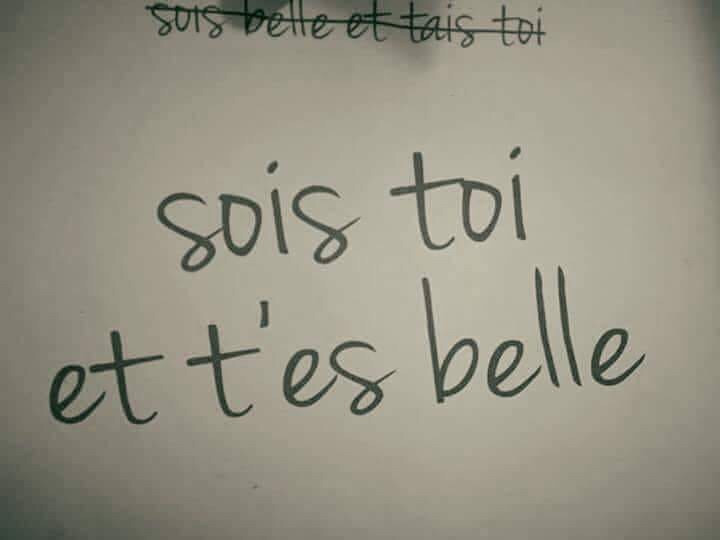 sois belle et tais toi
sois toi
et t'es belle